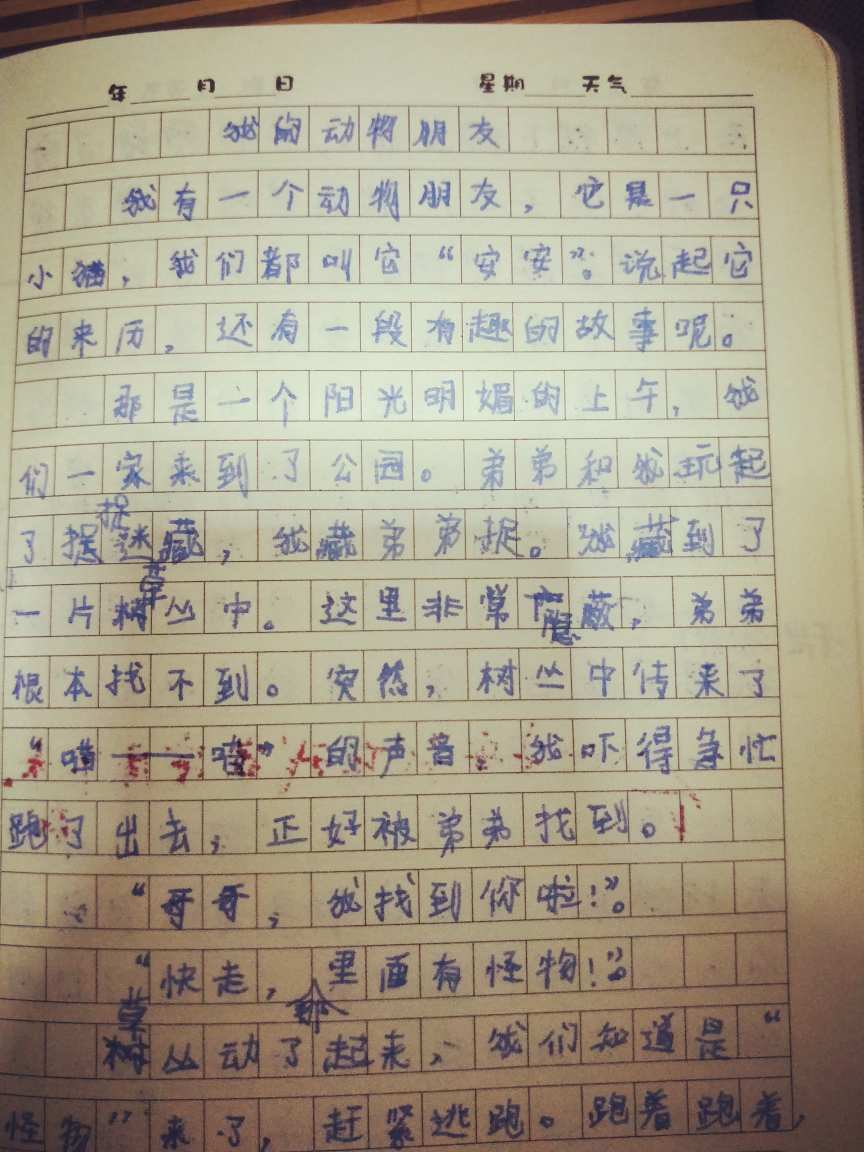 年 月 日 星期 天气
我的动物朋友
我有一个动物朋友，它是一只
小猫，我们都叫它“安安”。说起它
的来历，还有一段有趣的故事呢。
那是一个阳光明媚的上午，我
们一家来到了公园。弟弟和我玩起
了捉迷藏，我藏弟弟捉。我藏到了
一片草丛中。这里非常隐蔽，弟弟
根本找不到。突然，树丛中传来了
“喵——喵”的声音，我吓得急忙
跑了出去，正好被弟弟找到。
“哥哥，我找到你啦！”。
“快走，里面有怪物！”。
草丛动了起来，我们知道是“
怪物”来了，赶紧逃跑。跑着跑着，